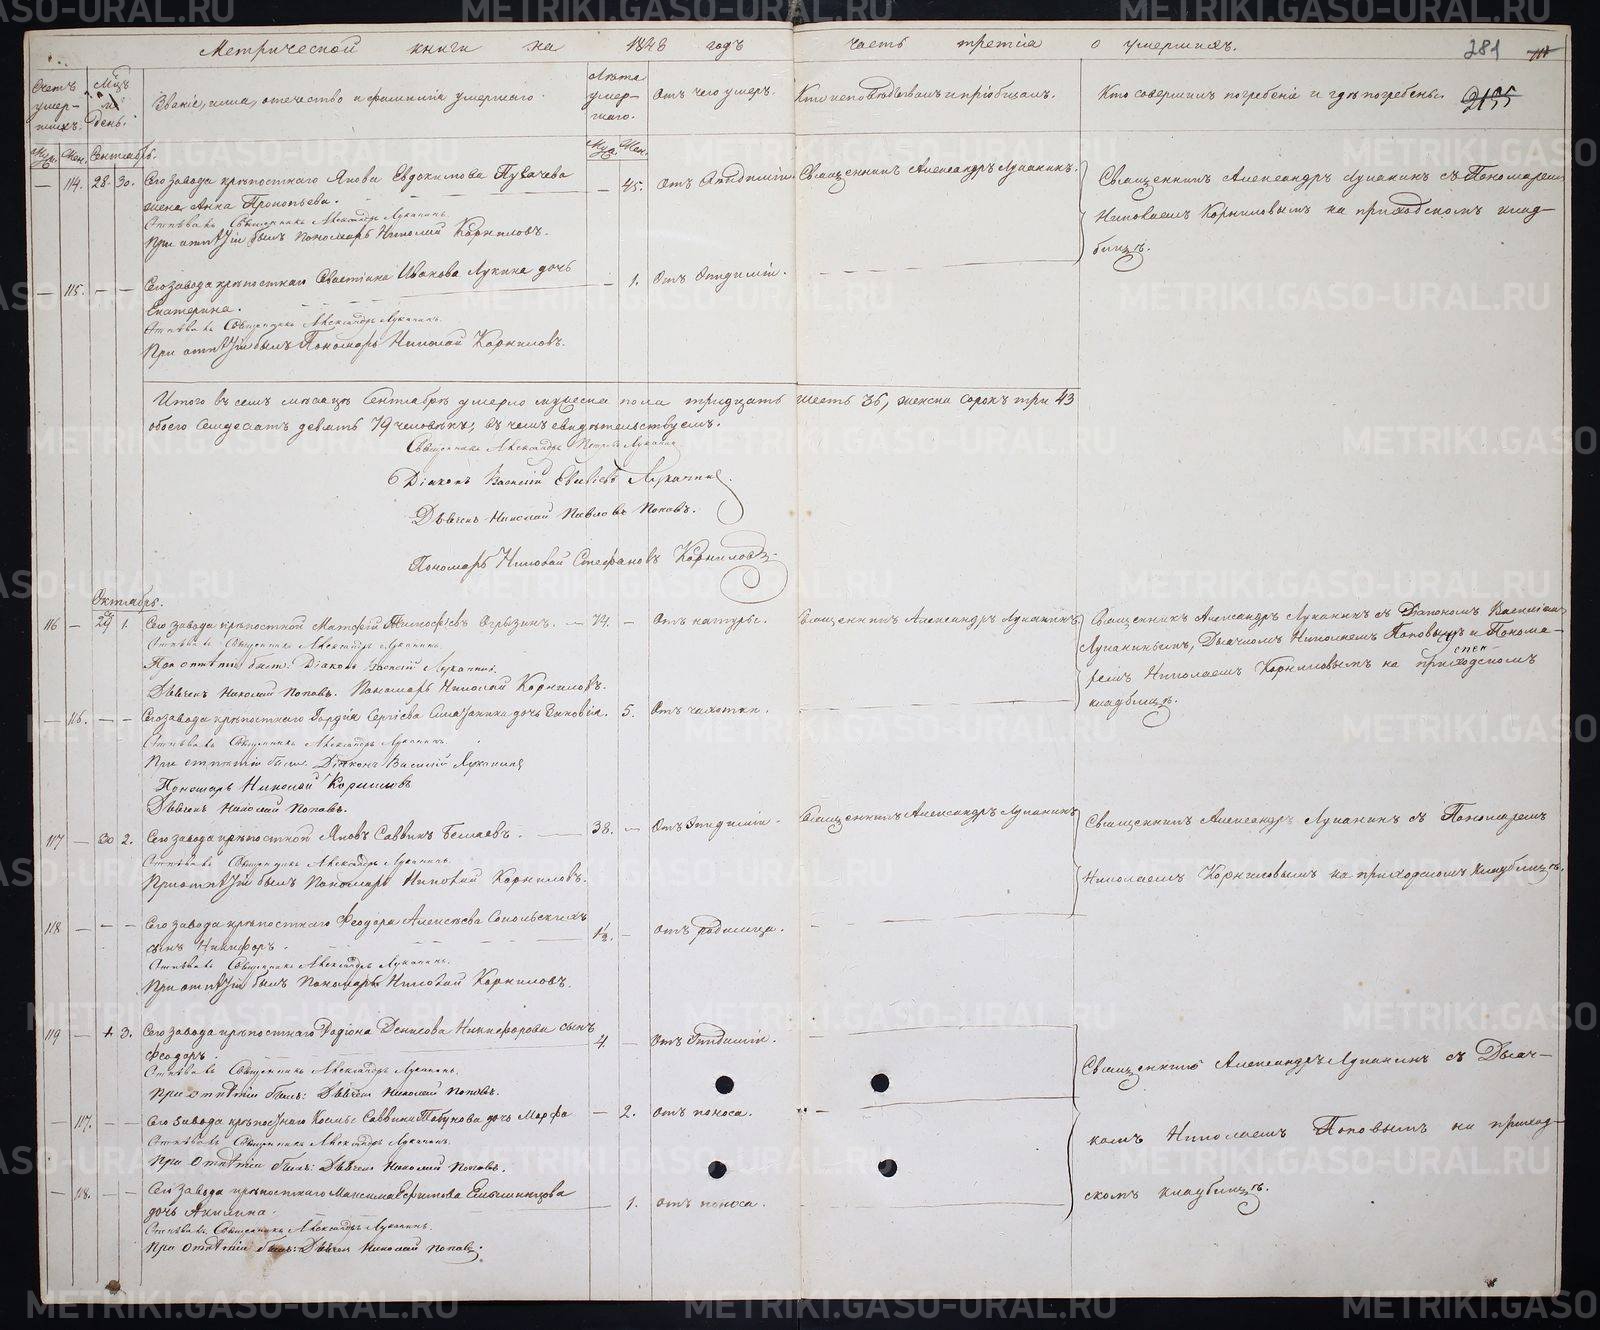 Метрической книги на 1848 годъ часть третія о умершихъ.
281
2155
Счетъ умер-шихъ.
Мѣс. и день.
Званіе, имя, отечество и фамилія умершаго.
Лѣта умер-шаго.
Отъ чего умеръ.
Кто исповѣдывалъ и пріобщалъ.
Кто совершилъ погребеніе и гдѣ погребены.
Муж. Жен. Сентябрь. Муж. Жен.
— 114. 28. 30. Сего завода крѣпостнаго Якова Евдокимова Пугачева — 45. Отъ Эпидиміи. Священникъ Александръ Луканинъ.
жена Анна Прокопьева.
Отпѣвалъ Священникъ Александръ Луканинъ.
При отпѣтіи былъ Пономарь Николай Корниловъ.
Священникъ Александръ Луканинъ съ Пономаремъ
Николаемъ Корниловымъ на приходскомъ клад-
бищѣ.
— 115. — — Сего завода крѣпостнаго Иванова Лукина дочь — 1. Отъ Эпидиміи.
Екатерина.
Отпѣвалъ Священникъ Александръ Луканинъ.
При отпѣтіи былъ Пономарь Николай Корниловъ.
Итого въ семъ мѣсяцѣ Сентябрѣ умерло мужеска пола тридцать шесть 36, женска сорокъ три 43
обоего семдесятъ девять 79 человѣкъ, въ чемъ свидѣтельствуемъ.
Священникъ Александръ Петровъ Луканин
Діаконъ Василій Луканинъ.
Дьячекъ Николай Павловъ Поповъ.
Пономарь Николай Стефановъ Корниловъ
Октябрь.
116 — 29 1. Сего завода крѣпостной Матфей Тимофѣевъ Оглызинъ. — 74. — Отъ натуры. Священникъ Александръ Луканинъ.
Отпѣвалъ Священникъ Александръ Луканинъ.
При отпѣтіи были: Діаконъ Василій Луканинъ.
Дьячекъ Николай Поповъ. Пономарь Николай Корниловъ.
Священникъ Александръ Луканинъ съ Діакономъ Василіемъ
Луканинымъ, Дьячкомъ Николаемъ Поповымъ и Понома-
ремъ Николаемъ Корниловымъ на приходскомъ
кладбищѣ.
— 116. — — Сего завода крѣпостнаго Гордія Сергіева дочь 5. Отъ чахотки.
Отпѣвалъ Священникъ Александръ Луканинъ.
При отпѣтіи были: Діаконъ Василій Луканинъ
Пономарь Николай Корниловъ
Дьячекъ Николай Поповъ.
117 — 30 2. Сего завода крѣпостной Яковъ Саввинъ Бѣляевъ. — 38. — Отъ Эпидиміи. Священникъ Александръ Луканинъ
Отпѣвалъ Священникъ Александръ Луканинъ.
При отпѣтіи былъ Пономарь Николай Корниловъ.
Священникъ Александръ Луканинъ съ Пономаремъ
Николаемъ Корниловымъ на приходскомъ кладбищѣ.
118 — — — Сего завода крѣпостнаго Феодора Алексѣева Сокольскихъ 1½. — Отъ родимца.
сынъ Никифоръ.
Отпѣвалъ Священникъ Александръ Луканинъ.
При отпѣтіи былъ Пономарь Николай Корниловъ.
119 — 1. 3. Сего завода крѣпостнаго Родіона Денисова Никифорова сынъ 4. — Отъ Эпидиміи.
Феодоръ.
Отпѣвалъ Священникъ Александръ Луканинъ.
При отпѣтіи былъ: Дьячекъ Николай Поповъ.
Священникъ Александръ Луканинъ съ Дьяч-
комъ Николаемъ Поповымъ на приход-
скомъ кладбищѣ.
— 117. — — Сего завода крѣпостнаго Козьмы Саввина Табунова дочь Марфа — 2. Отъ поноса.
Отпѣвалъ Священникъ Александръ Луканинъ.
При отпѣтіи былъ: Дьячекъ Николай Поповъ.
— 118. — — Сего завода крѣпостнаго Максима Ефимова дочь Акилина. — 1. Отъ поноса.
Отпѣвалъ Священникъ Александръ Луканинъ.
При отпѣтіи былъ: Дьячекъ Николай Поповъ.
METRIKI.GASO-URAL.RU